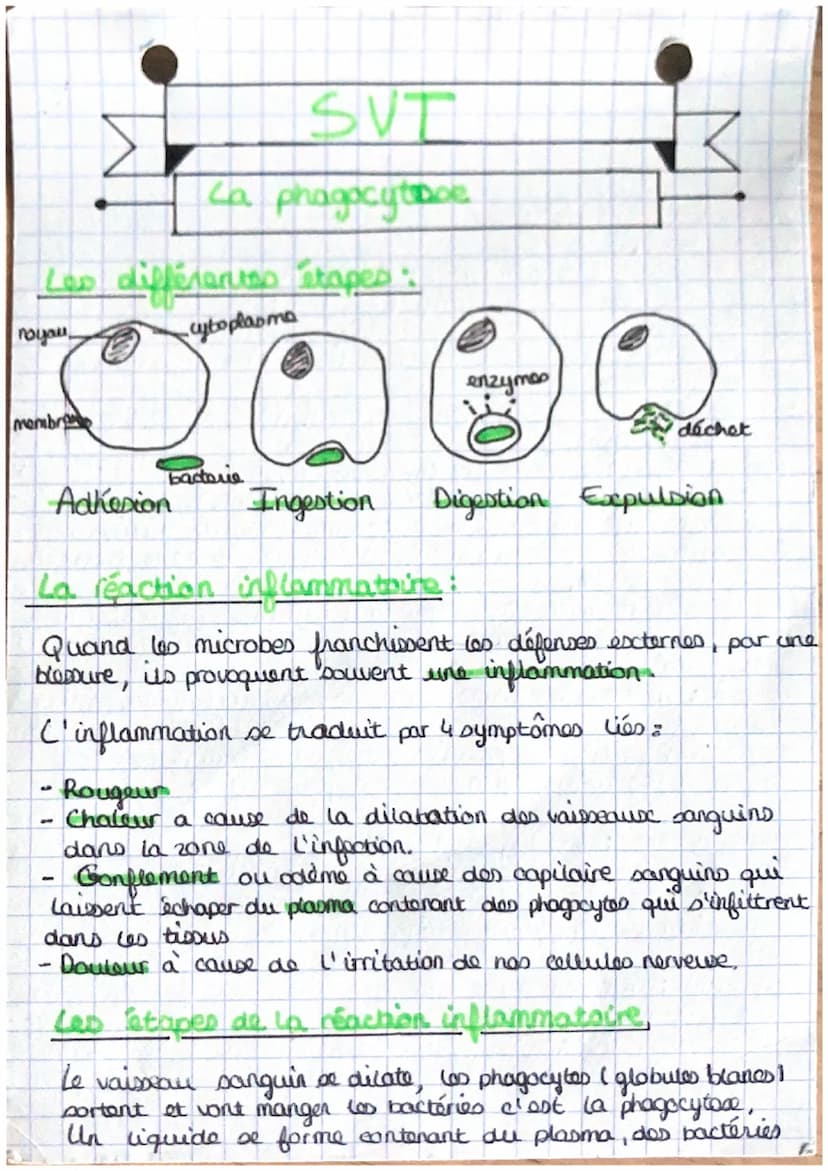 SVT
La phagocytose
Les différentes étapes :
noyau
cytoplasme
membrane
bactérie
enzymes
déchet
Adhésion Ingestion Digestion Expulsion
La réaction inflammatoire :
Quand les microbes franchissent les défenses externes, par une
blessure, ils provoquent souvent une inflammation.
L'inflammation se traduit par 4 symptômes liés :
- Rougeur
- Chaleur a cause de la dilatation des vaisseaux sanguins
dans la zone de l'infection.
- Gonflement ou odème à cause des capilaire sanguins qui
laissent échaper du plasma contenant des phagocytes qui s'infiltrent
dans les tissus
- Douleur à cause de l'irritation de nos cellules nerveuse.
Les étapes de la réaction inflammatoire
Le vaisseau sanguin se dilate, les phagocytes (globules blancs)
sortent et vont manger les bactéries c'est la phagocytose.
Un liquide se forme contenant du plasma, des bactéries